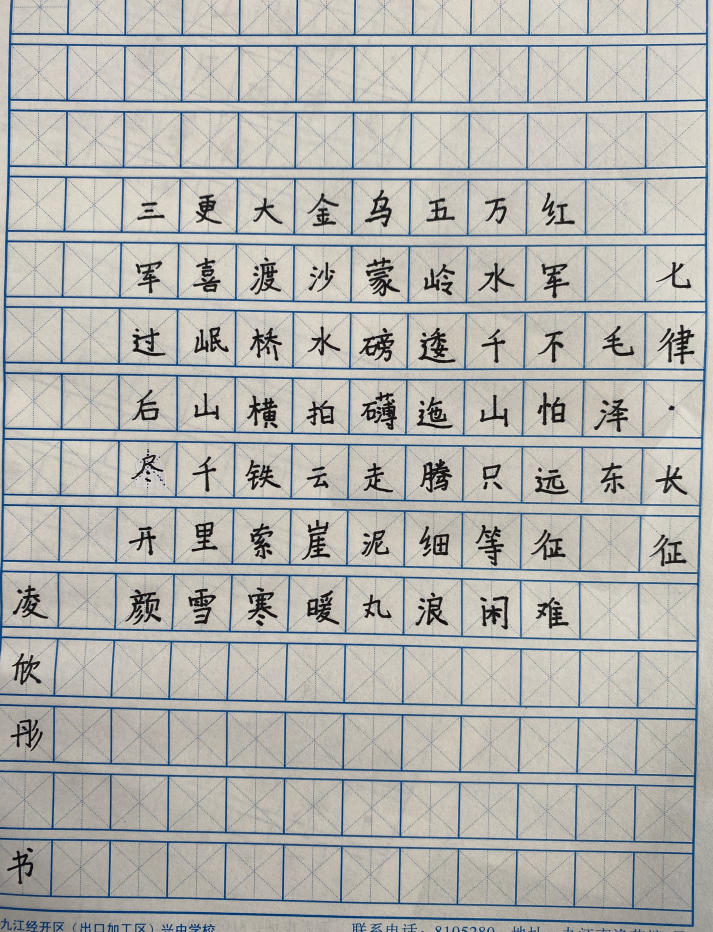 七律·长征
毛泽东
红军不怕远征难
万水千山只等闲
五岭逶迤腾细浪
乌蒙磅礴走泥丸
金沙水拍云崖暖
大渡桥横铁索寒
更喜岷山千里雪
三军过后尽开颜
凌欣彤 书
九江经开区（出口加工区）兴中学校
联系电话：8105280 地址